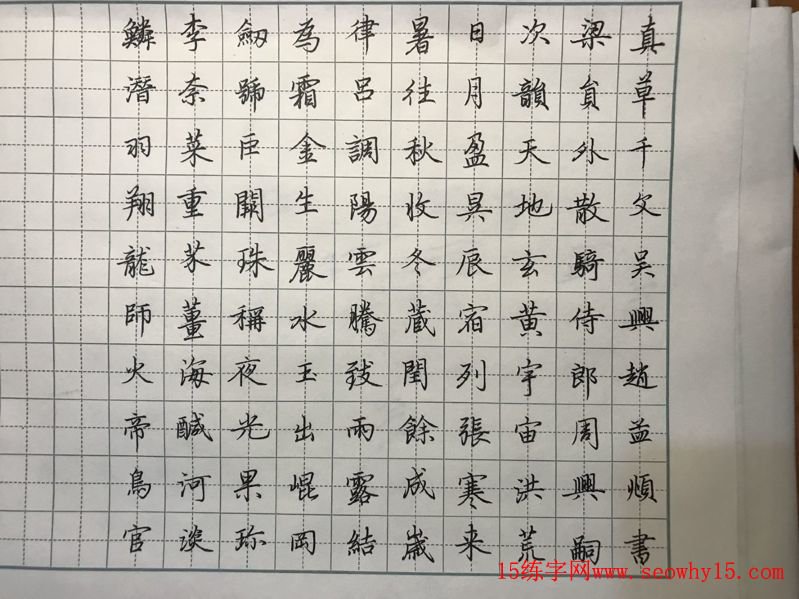 真草千文吴興趙益順書
梁員外散騎侍郎周興嗣
次韻天地玄黄宇宙洪荒
日月盈昃辰宿列張寒来
暑往秋收冬蔵閏餘成歲
律吕調陽雲騰致雨露結
為霜金生麗水玉出崐岡
劔號巨闕珠稱夜光果珎
李柰菜重芥薑海醎河淡
鱗潛羽翔龍師火帝鳥官
15练字网www.seowhy15.com